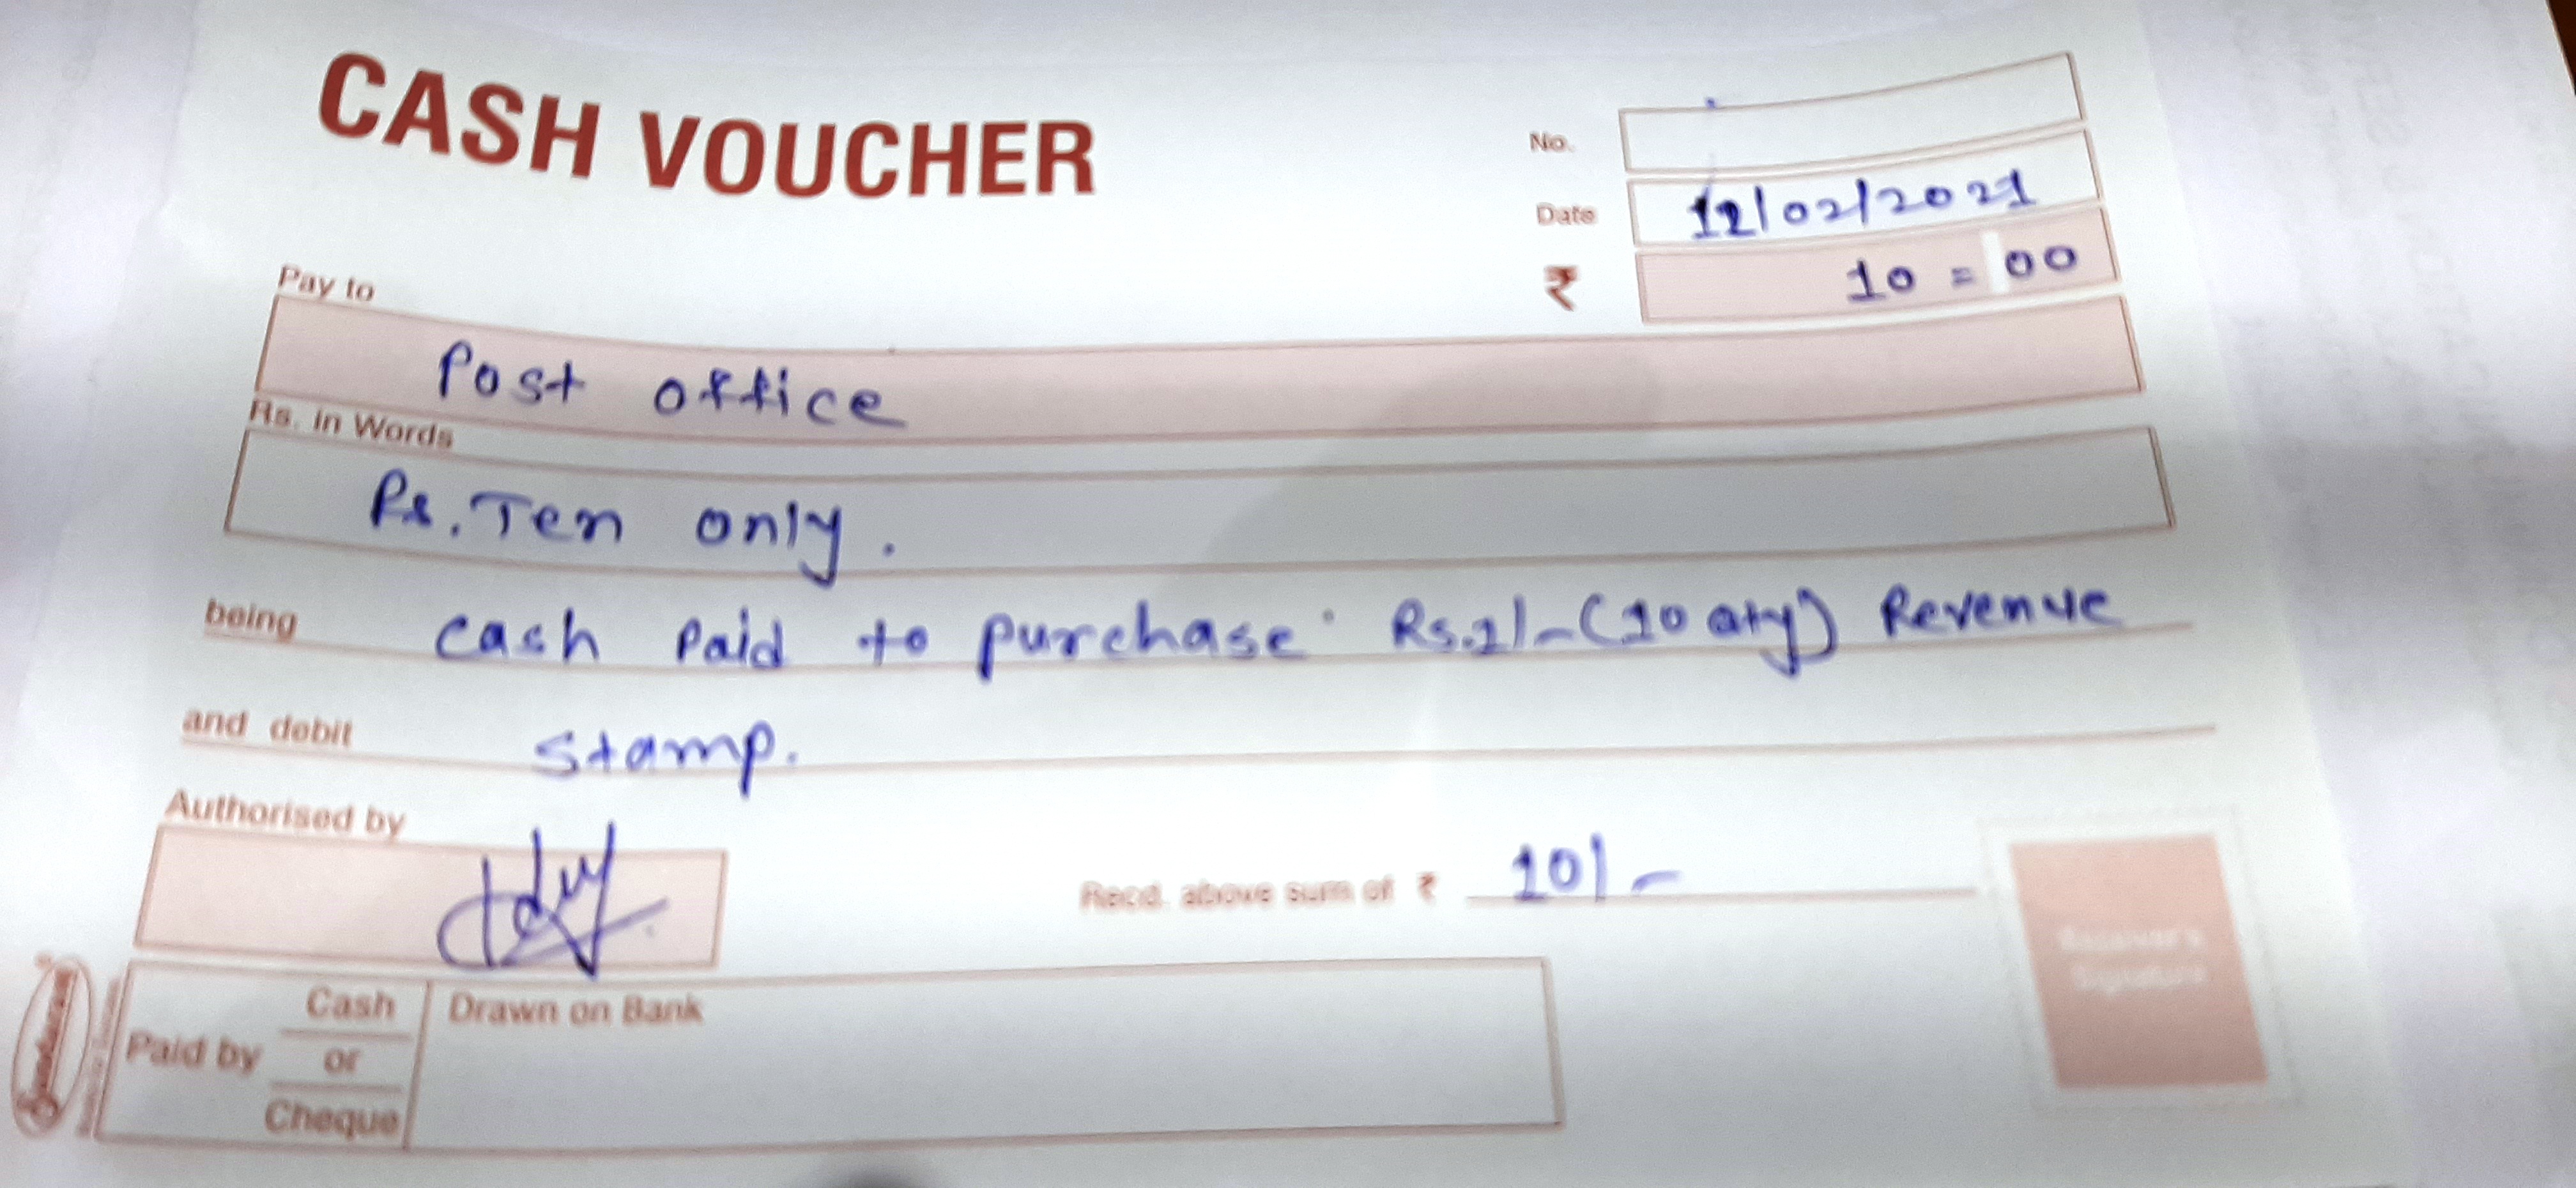 CASH VOUCHER
No.
Date 12/02/2021
₹ 10 = 00
Pay to
Post office
Rs. in Words
Rs. Ten only.
being cash paid to purchase Rs.1/- (10 qty) Revenue
and debit stamp.
Authorised by
Recd. above sum of ₹ 10/-
Receiver's
Signature
Paid by Cash or Cheque
Drawn on Bank